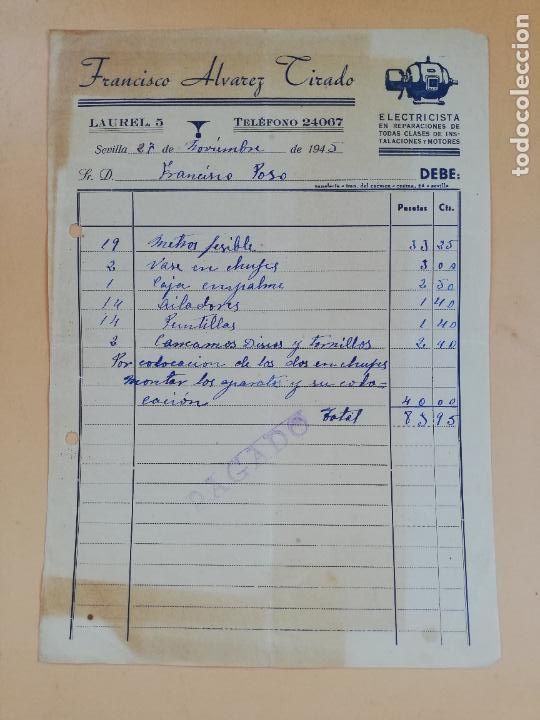 Francisco Alvarez Tirado
LAUREL, 5 TELÉFONO 24067
ELECTRICISTA
EN REPARACIONES DE
TODAS CLASES DE INS-
TALACIONES Y MOTORES
Sevilla 27 de Noviembre de 1945
Sr. D. Francisco Poso DEBE:
Pesetas Cts.
19 Metros fesible 33 25
2 Vase enchufes 3 00
1 Caja empalme 2 50
14 Aisladores 1 40
14 Puntillas 1 40
2 Cancamos Dinos y tornillos 2 40
Por colocacion de los dos enchufes
Montar los aparato y su colo-
cación 40 00
Total 83 95
PAGADO
todocoleccion.net